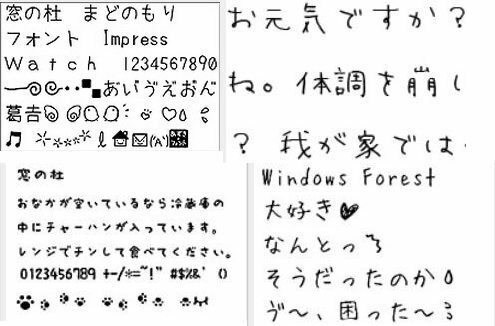 窓の杜　まどのもり
フォント　Impress
Ｗａｔｃｈ　1234567890
あい゛う゛えおん
葛
♡
♫
お元気ですか？
ね。体調を崩し
？　我が家では
窓の杜
おなかが空いているなら冷蔵庫の
中にチャーハンが入っています。
レンジでチンして食べてください。
0123456789 +-/*=~!" #$%&' ()
Windows Forest
大好き♥
なんとっ
そうだったのか
ゔ～、困った～